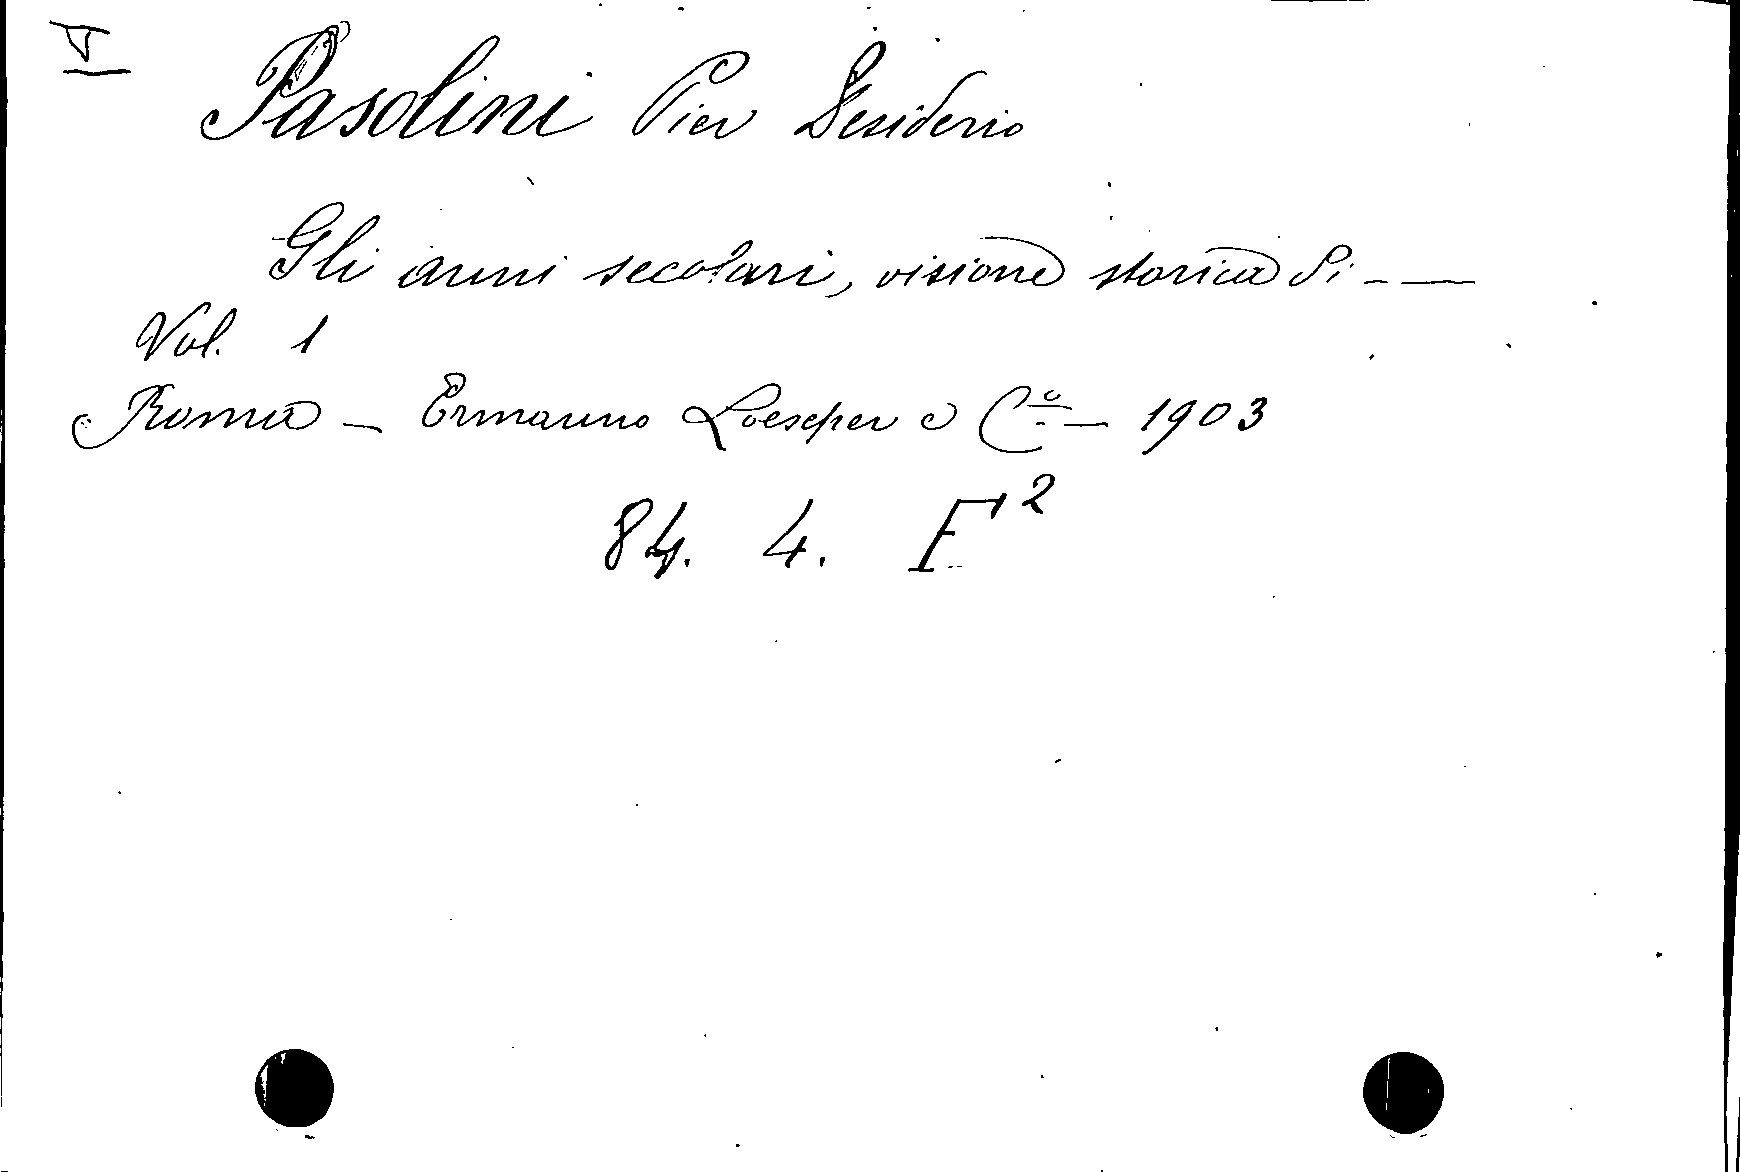 Pasolini Pier Desiderio
Gli anni secolari, visione storica di - —
Vol. 1
Roma - Ermanno Loescher e C.º - 1903
84. 4. F 2